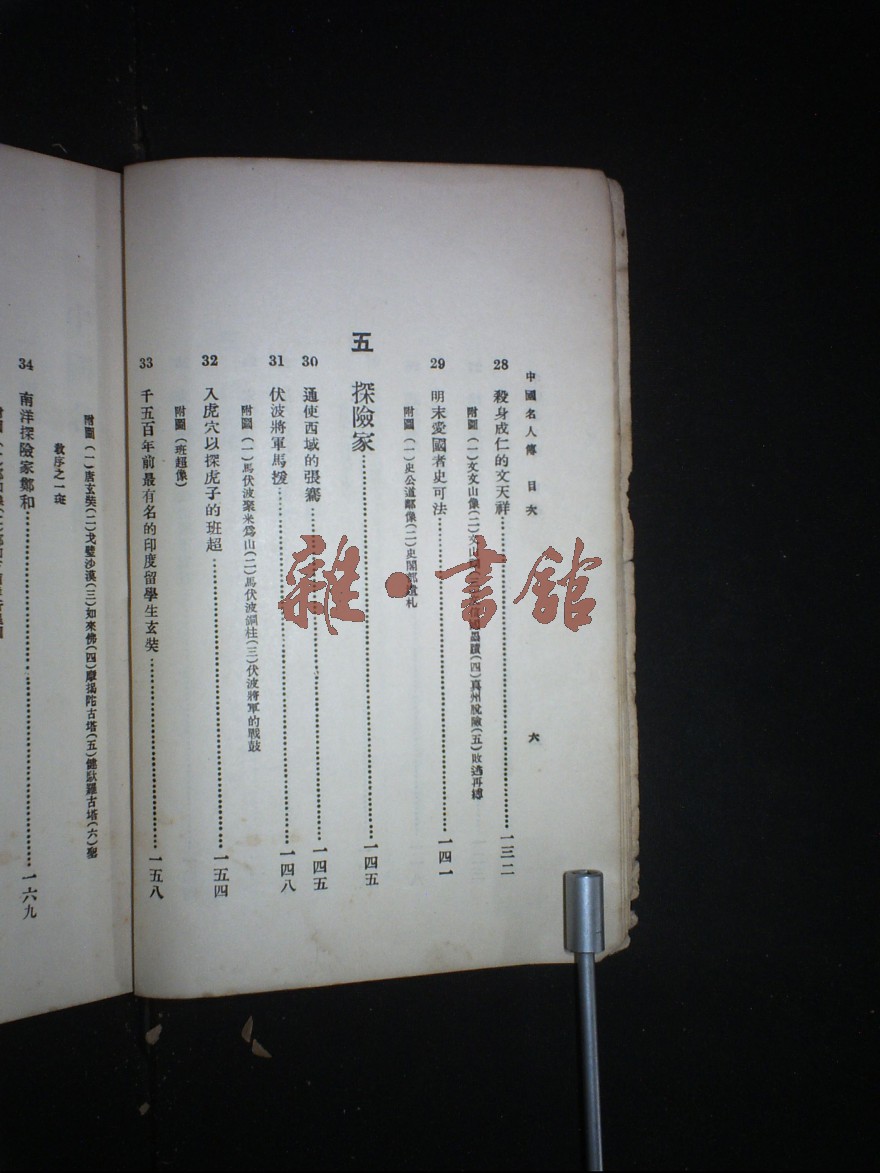 中國名人傳 目次
六
28 殺身成仁的文天祥……一三二
附圖(一)文文山像(二)文山 蹟(四)真州脫險(五)敗逃再續
29 明末愛國者史可法……一四一
附圖(一)史公道鄰像(二)史閣部遺札
五 探險家……一四五
30 通使西域的張騫……一四五
31 伏波將軍馬援……一四八
附圖(一)馬伏波聚米爲山(二)馬伏波銅柱(三)伏波將軍的戰鼓
32 入虎穴以探虎子的班超……一五四
附圖(班超像)
33 千五百年前最有名的印度留學生玄奘……一五八
附圖(一)唐玄奘(二)戈壁沙漠(三)如來佛(四)摩揭陀古塔(五)健馱羅古塔(六)聖
教序之一斑
34 南洋探險家鄭和……一六九
雜·書館